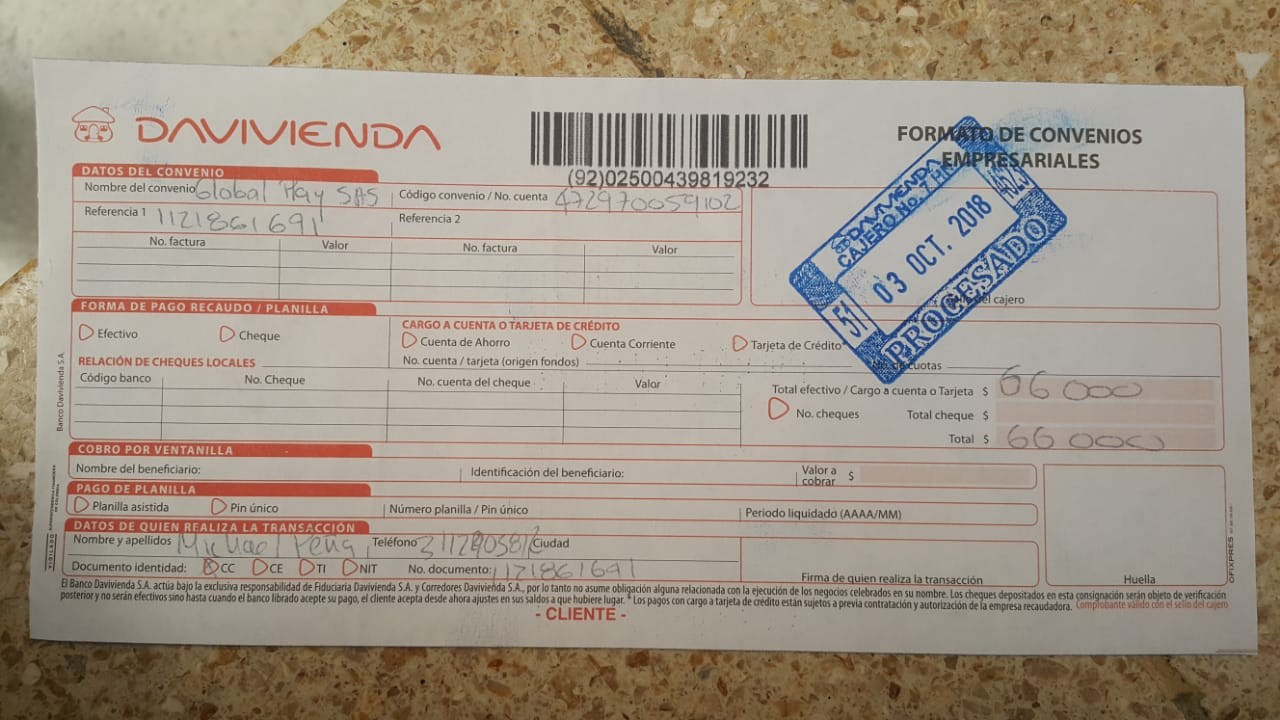 DAVIVIENDA
(92)02500439819232
FORMATO DE CONVENIOS
EMPRESARIALES
DATOS DEL CONVENIO
Nombre del convenio Global Hay SAS Código convenio / No. cuenta 472970059102
Referencia 1 1121861691 Referencia 2
No. factura Valor No. factura Valor
DAVIVIENDA
CAJERO No. 7
51 03 OCT. 2018
PROCESADO
del cajero
FORMA DE PAGO RECAUDO / PLANILLA
Efectivo Cheque
CARGO A CUENTA O TARJETA DE CRÉDITO
Cuenta de Ahorro Cuenta Corriente Tarjeta de Crédito*
No. cuenta / tarjeta (origen fondos) No. de cuotas
RELACIÓN DE CHEQUES LOCALES
Código banco No. Cheque No. cuenta del cheque Valor
Total efectivo / Cargo a cuenta o Tarjeta $ 66 000
No. cheques Total cheque $
Total $ 66 000
COBRO POR VENTANILLA
Nombre del beneficiario: Identificación del beneficiario: Valor a cobrar $
PAGO DE PLANILLA
Planilla asistida Pin único Número planilla / Pin único Periodo liquidado (AAAA/MM)
DATOS DE QUIEN REALIZA LA TRANSACCIÓN
Nombre y apellidos Michael Peña Teléfono Ciudad
Documento identidad: CC CE TI NIT No. documento: 1121861691
Firma de quien realiza la transacción Huella
El Banco Davivienda S.A. actúa bajo la exclusiva responsabilidad de Fiduciaria Davivienda S.A. y Corredores Davivienda S.A., por lo tanto no asume obligación alguna relacionada con la ejecución de los negocios celebrados en su nombre. Los cheques depositados en esta consignación serán objeto de verificación
posterior y no serán efectivos sino hasta cuando el banco librado acepte su pago, el cliente acepta desde ahora ajustes en sus saldos a que hubiere lugar. * Los pagos con cargo a tarjeta de crédito están sujetos a previa contratación y autorización de la empresa recaudadora. Comprobante válido con el sello del cajero
- CLIENTE -
Banco Davivienda S.A.
VIGILADO
OFIXPRES